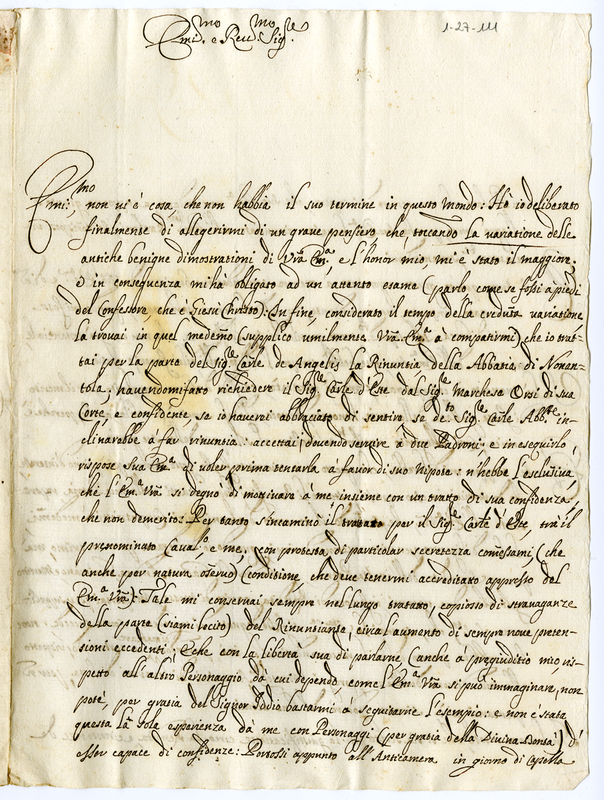 1-27-111
Emi.mo e Reu.mo Sig.re
Emi:mo non ui è cosa, che non habbia il suo termine in questo mondo: Hò io deliberato
finalmente di allegerirmi di un graue pensiero che, toccando la uariatione delle
antiche benigne dimostrationi di Vra Em.a, e l'honor mio, mi è stato il maggiore.
e in consequenza mi hà obligato ad un attento esame (parlo come se fossi a piedi
del Confessore, che è Giesù Christo): In fine, considerato il tempo della creduta uariatione
la trouai in quel medemo (supplico umilmente Vra Em.a à compatirmi) che io trat-
tai per la parte del Sig.le Carle de Angelis la Rinuntia della Abbatia di Nonan-
tola, hauendomi fatto richiedere il Sig.le Carle d'Este dal Sig.le Marchese Orsi di sua
Corte, e confidente, se io hauerei abbraciato di sentire se de.to Sig.le Carle Abb.te in-
clinarebbe à far rinuntia: accettai, douendo seruire a due Padroni; e in eseguirlo,
rispose Sua Em.a di uoler prima tentarla à fauor di suo Nipote: n'hebbe l'esclusiua,
che l'Em.a Vra si degnò di motiuare à me insieme con un tratto di sua confidenza,
che non demerito: Per tanto s'incaminò il trattato per il Sig.le Carle d'Este, trà il
prenominato Caual.o e me, con protesta di particolar secretezza comessami, (che
anche per natura osseruo) (conditione che deue tenermi accreditato appresso del
Em.a Vra): Tale mi conseruai sempre nel lungo trattato, copioso di strauaganze
della parte (siami locito) del Rinuntiante, circa l'aumento di sempre noue preten-
sioni eccedenti; E che con la libertà sua di parlarne, (anche à pregiuditio mio, ris-
petto all'altro Personaggio da cui dependo, come l'Em.a Vra si può immaginare, non
potè, per gratia del Signor Iddio bastarmi à seguitarne l'esempio: e non è stata
questa la sola esperienza dà me con Personaggi (per gratia della Diuina Bontà) d'
esser capace di confidenze: Portossi appunto all'Anticamera in giorno di Capella